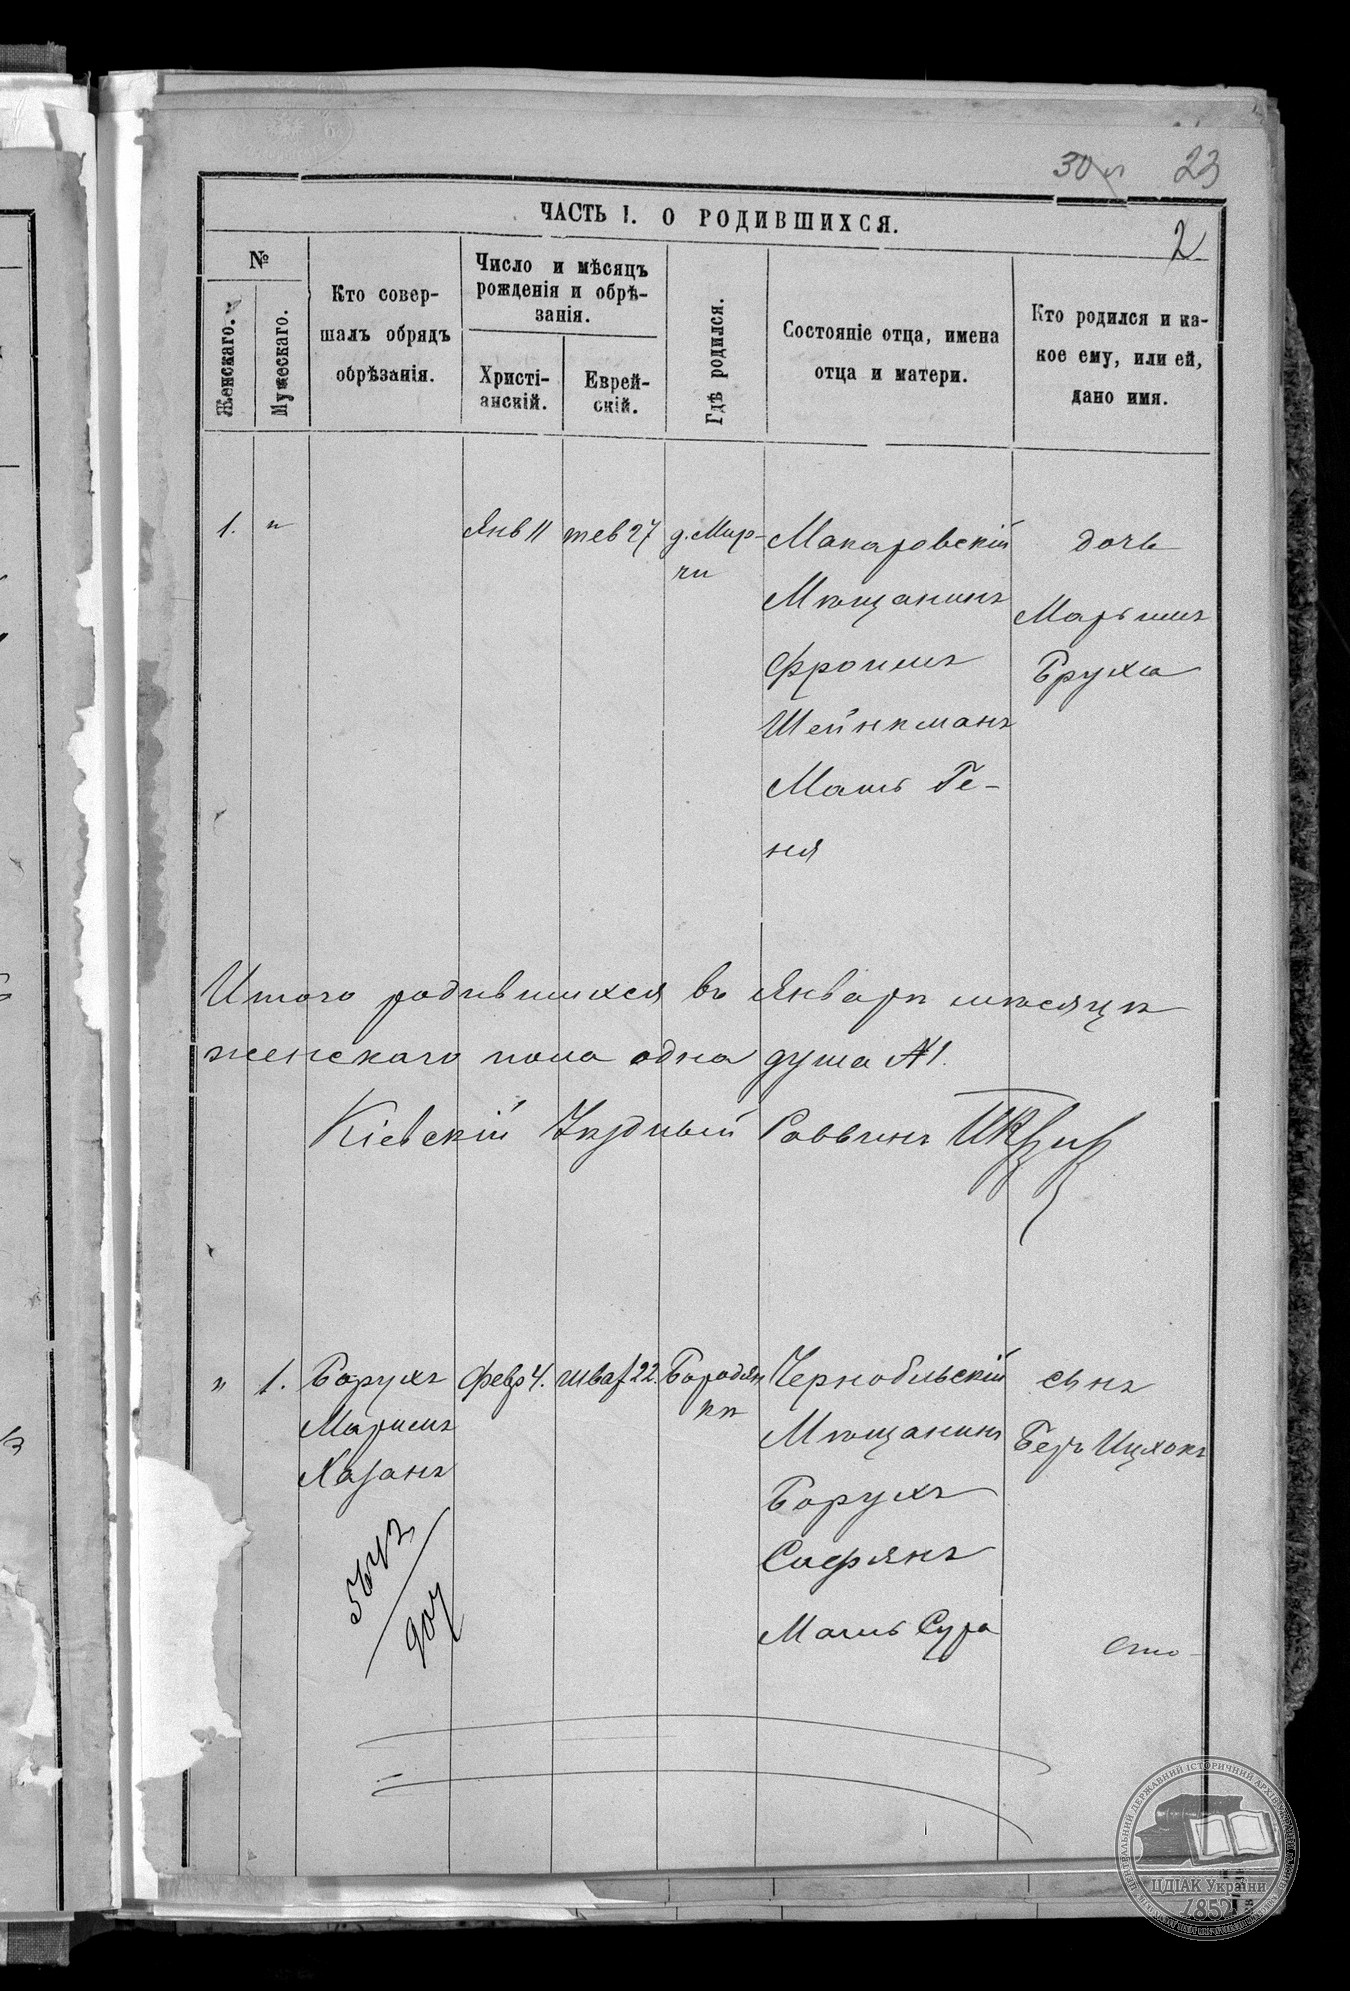 30
23
ЧАСТЬ I. О РОДИВШИХСЯ.
2
№
Женскаго.
Мужескаго.
Кто совер-
шалъ обрядъ
обрѣзанія.
Число и мѣсяцъ
рожденія и обрѣ-
занія.
Христі-
анскій.
Еврей-
скій.
Гдѣ родился.
Состояніе отца, имена
отца и матери.
Кто родился и ка-
кое ему, или ей,
дано имя.
1. " Янв 11 тев 27 д. Мир-
чи
Макаровскій
Мѣщанинъ
Фроимъ
Шейнкманъ
Мать Ге-
ня
дочь
Марьимъ
Бруха
Итого родившихся въ Январѣ мѣсяцѣ
женскаго пола одна душа №1.
Кіевскій Уѣздный Раввинъ
" 1. Борухъ
Маримъ
Хазанъ
5642
907
Февр 4. шват 22. Бородян
кѣ
Чернобыльскій
Мѣщанинъ
Борухъ
Сафянъ
Мать Сура
сынъ
Беръ Ицхокъ
Ито-
ЦЕНТРАЛЬНИЙ ДЕРЖАВНИЙ ІСТОРИЧНИЙ АРХІВ УКРАЇНИ
ЦДІАК України
1852